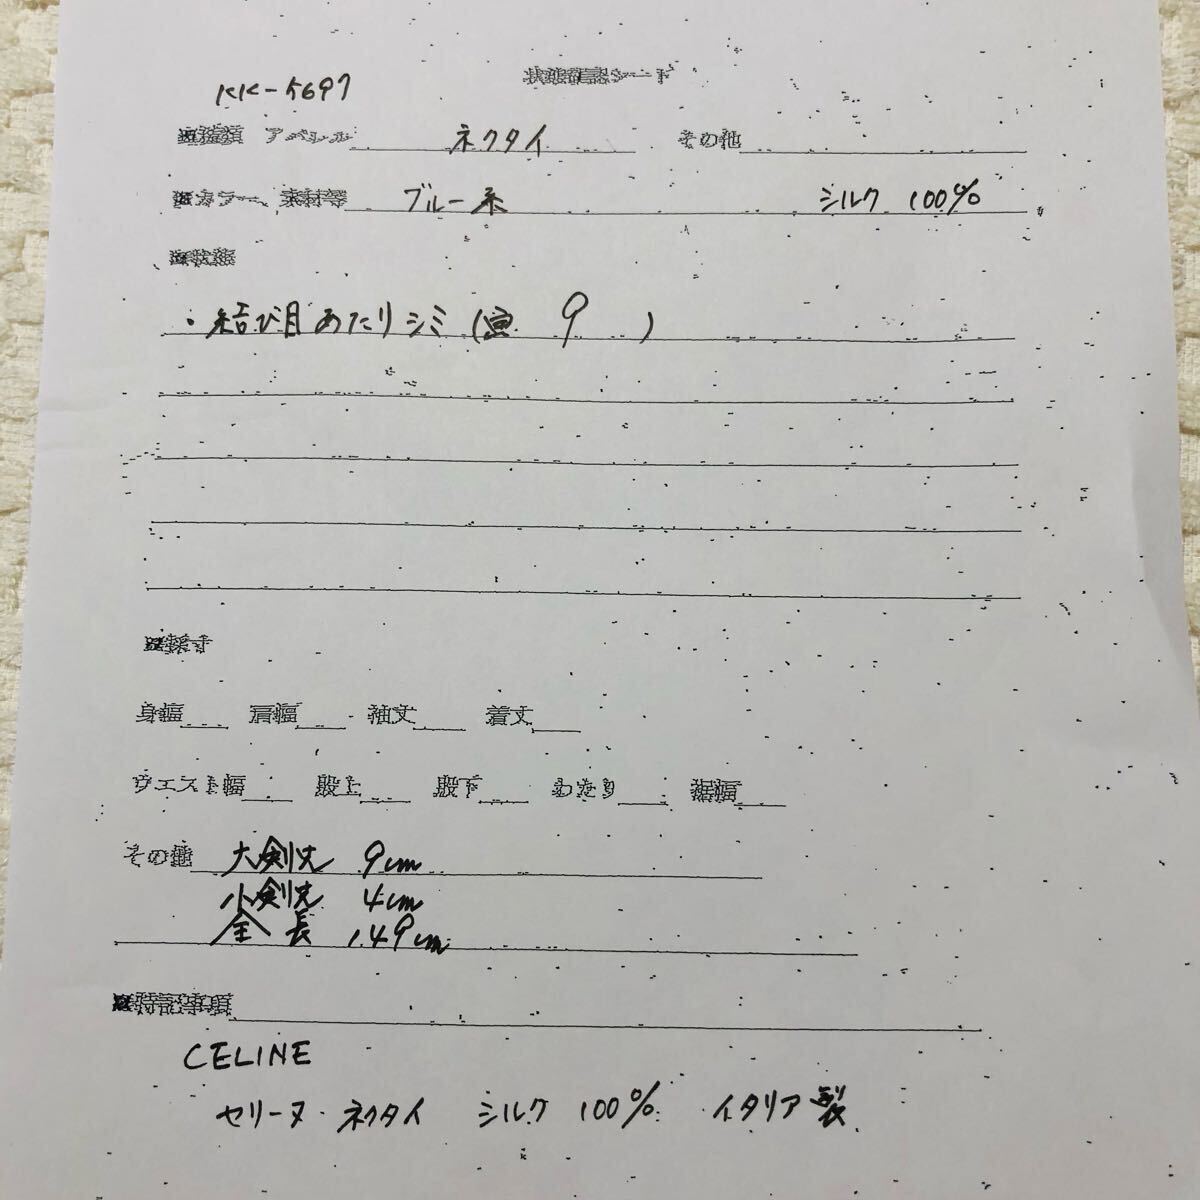 状態確認シート
KK-5697
※種類 アパレル ネクタイ その他
※カラー、素材等 ブルー系 シルク 100%
※状態
・結び目あたりシミ(画 9 )
※採寸
身幅 肩幅 袖丈 着丈
ウエスト幅 股上 股下 わたり 裾幅
その他 大剣先 9cm
小剣先 4cm
全長 149cm
※特記事項
CELINE
セリーヌ ネクタイ シルク 100% イタリア製